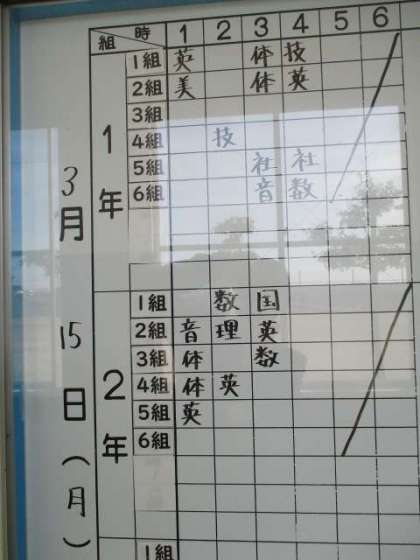 3月15日(月)
組 時 1 2 3 4 5 6
1年
1組 英 体 技
2組 美 体 英
3組
4組 技
5組 社 社
6組 音 数
2年
1組 数 国
2組 音 理 英
3組 体 数
4組 体 英
5組 英
6組
1組